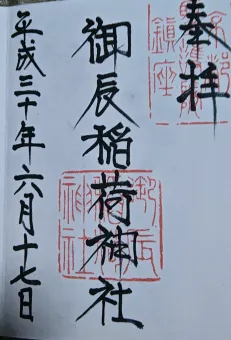 奉拝
御辰稲荷神社
平成三十年六月十七日
鎮座
御辰
稲荷
神社